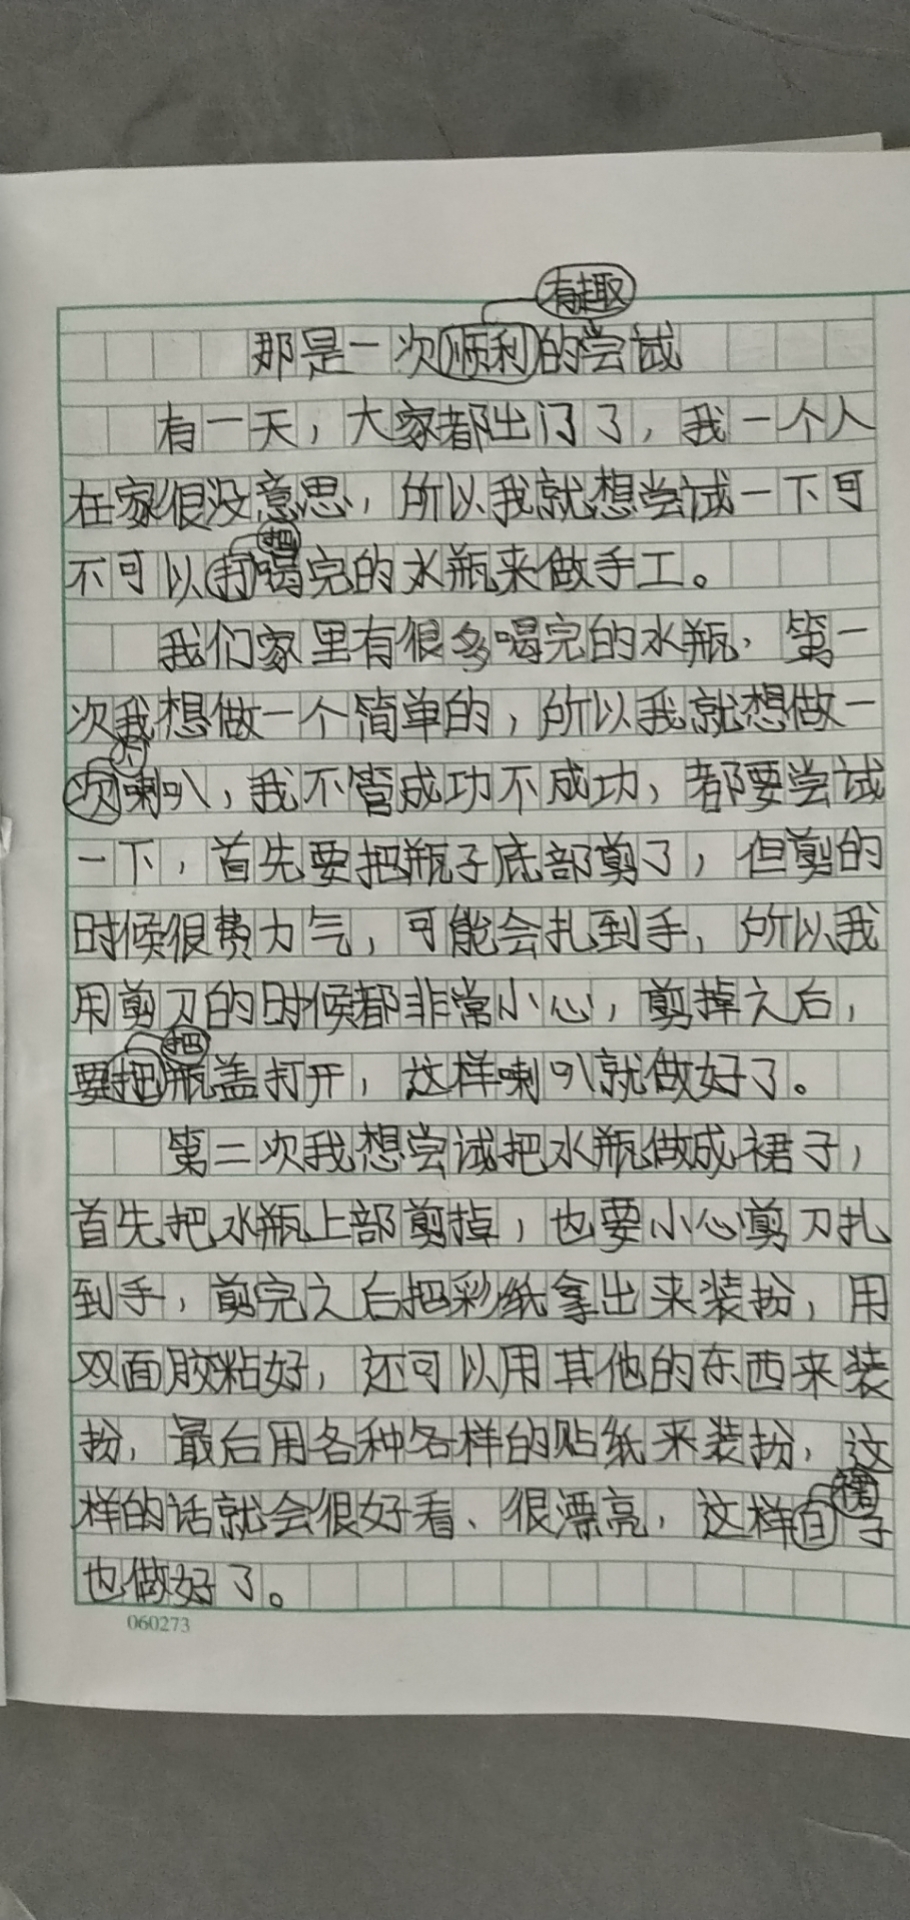 有趣
那是一次顺利的尝试
有一天，大家都出门了，我一个人
在家很没意思，所以我就想尝试一下可
把
不可以打喝完的水瓶来做手工。
我们家里有很多喝完的水瓶，第一
次我想做一个简单的，所以我就想做一
次喇叭，我不管成功不成功，都要尝试
一下，首先要把瓶子底部剪了，但剪的
时候很费力气，可能会扎到手，所以我
用剪刀的时候都非常小心，剪掉之后，
把
要把瓶盖打开，这样喇叭就做好了。
第二次我想尝试把水瓶做成裙子，
首先把水瓶上部剪掉，也要小心剪刀扎
到手，剪完之后把彩纸拿出来装扮，用
双面胶粘好，还可以用其他的东西来装
扮，最后用各种各样的贴纸来装扮，这
裙
样的话就会很好看、很漂亮，这样白子
也做好了。
060273